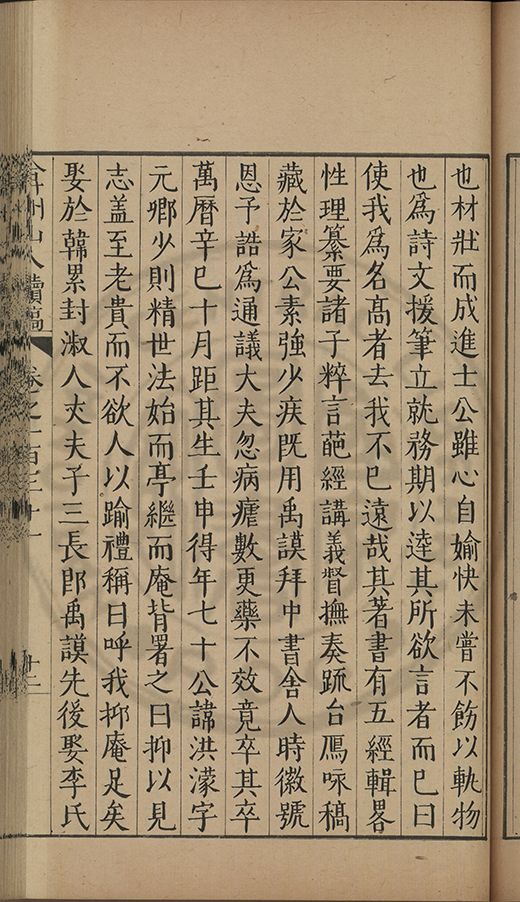 也材壯而成進士公雖心自媮快未嘗不飭以軌物
也爲詩文援筆立就務期以達其所欲言者而已曰
使我爲名高者去我不已遠哉其著書有五經輯畧
性理纂要諸子粹言葩經講義督撫奏疏台鴈咏稿
藏於家公素強少疾旣用禹謨拜中書舍人時徽號
恩予誥爲通議大夫忽病瘧數更藥不效竟卒其卒
萬曆辛巳十月距其生壬申得年七十公諱洪濛字
元卿少則精世法始而亭繼而庵皆署之曰抑以見
志盖至老貴而不欲人以踰禮稱曰呼我抑庵足矣
娶於韓累封淑人丈夫子三長郎禹謨先後娶李氏
弇州山人續稿 卷之一百三十一 十二